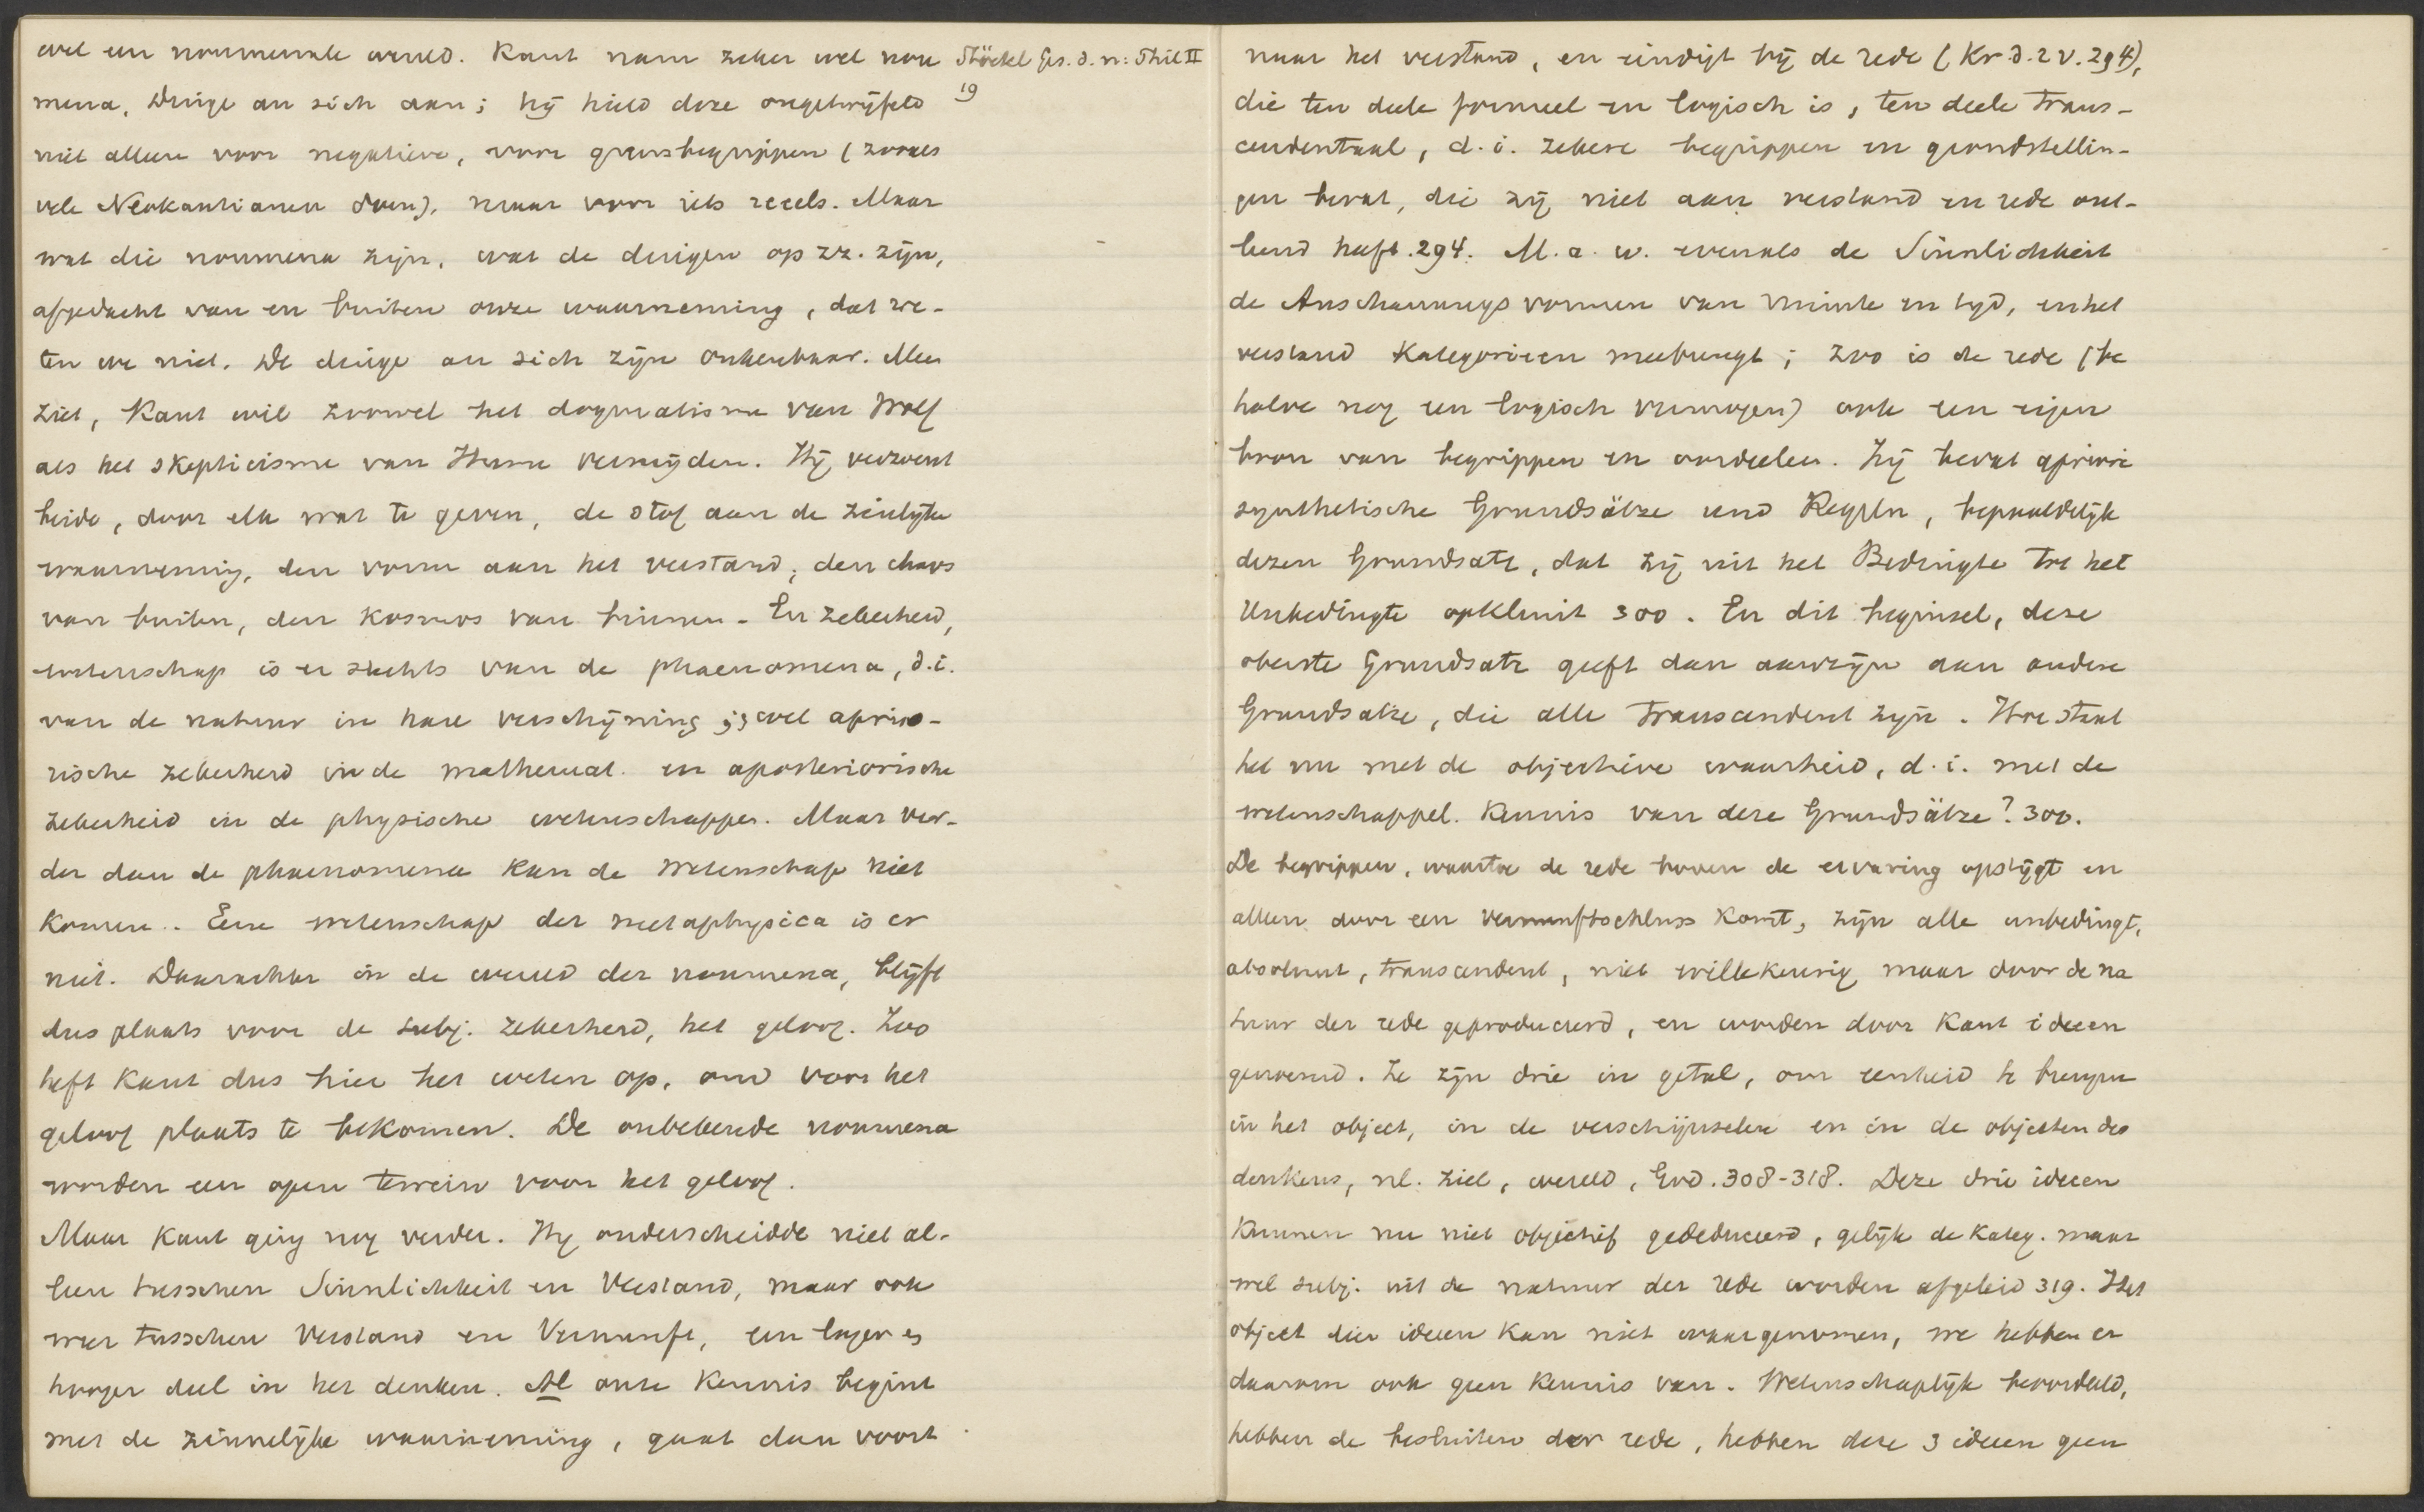 wel een noumenale wereld. Kant nam zeker wel nou
Stöckel Ges. d. n: Phil II
19
mena, Dinge an sich aan; hij hield deze ongetwijfeld
niet alleen voor negatieve, voor grensbegrippen (zooals
vele Neokantianen doen), maar voor iets reeels. Maar
wat die noumena zijn, wat de dingen op zz. zijn,
afgedacht van en buiten onze waarneming, dat we-
ten we niet. De dinge an sich zijn onkenbaar. Men
ziet, Kant wil zoowel het dogmatisme van Wolf
als het skepticisme van Hume vermijden. Hij verzoent
beide, door elk wat te geven, de stof aan de zinlijke
waarneming, den vorm aan het verstand; den chaos
van buiten, den kosmos van binnen. En zekerheid,
wetenschap is er slechts van de phaenomena, d.i.
van de natuur in hare verschijning; wel aprio-
rische zekerheid in de mathemat. en aposteriorische
zekerheid in de physische wetenschappen. Maar ver-
der dan de phaenomena kan de wetenschap niet
komen. Eene wetenschap der metaphysica is er
niet. Daarachter in de wereld der noumena, blijft
dus plaats voor de subj. zekerheid, het geloof. Zoo
heft Kant dus hier het weten op, om voor het
geloof plaats te bekomen. De onbekende noumena
worden een open terrein voor het geloof.
Maar Kant ging nog verder. Hij onderscheidde niet al-
leen tusschen Sinnlichkeit en Verstand, maar ook
weer tusschen Verstand en Vernunft, een lager en
hooger deel in het denken. Al onze kennis begint
met de zinnelijke waarneming, gaat dan voort
naar het verstand, en eindigt bij de rede (Kr. d. r V. 294),
die ten deele formeel en logisch is, ten deele trans-
cendentaal, d.i. zekere begrippen en grondstellin-
gen bevat, die zij niet aan verstand en rede ont-
leend heeft. 294. M.a.w. evenals de Sinnlichkeit
de Anschauungsvormen van ruimte en tijd, en het
verstand kategorieen meebrengt; zoo is de rede (be
halve nog een logisch vermogen) ook een eigen
bron van begrippen en oordeelen. Zij bevat apriori
synthetische Grundsätze und Regeln, bepaaldelijk
dezen Grundsatz, dat zij uit het Bedingte tot het
Unbedingte opklimt 300. En dit beginsel, deze
oberste Grundsatz geeft dan aanzijn aan andere
Grundsatze, die alle transcendent zijn. Hoe staat
het nu met de objectieve waarheid, d.i. met de
wetenschappel. kennis van deze Grundsätze? 300.
De begrippen, waartoe de rede boven de ervaring opstijgt en
alleen door een Vernunftschluss komt, zijn alle unbedingt,
absoluut, transcendent, niet willekeurig maar door de na
tuur der rede geproduceerd, en worden door Kant ideeen
genoemd. Ze zijn drie in getal, om eenheid te brengen
in het object, in de verschijnselen en in de objecten des
denkens, nl. ziel, wereld, God. 308-318. Deze drie ideeen
kunnen nu niet objectief gededuceerd, gelijk de kateg. maar
wel subj. uit de natuur der rede worden afgeleid 319. Het
object dier ideeen kan niet waargenomen, we hebben er
daarom ook geen kennis van. Wetenschaplijk beoordeeld,
hebben de besluiten der rede, hebben deze 3 ideeen geen